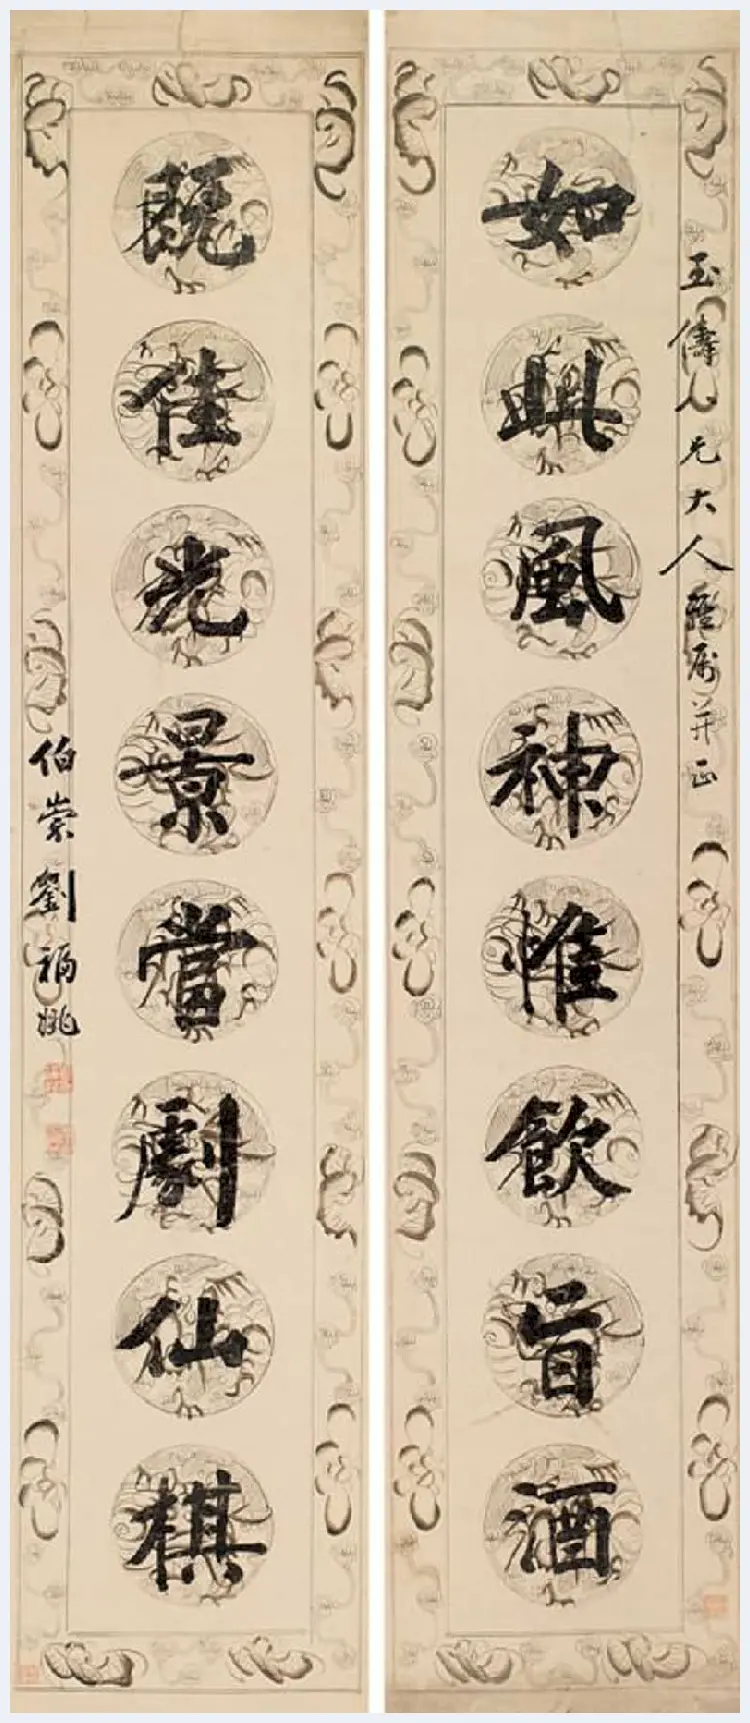 玉儔仁兄大人雅属并正
如此風神惟飲旨酒
既佳光景當劇仙棋
伯崇劉福姚